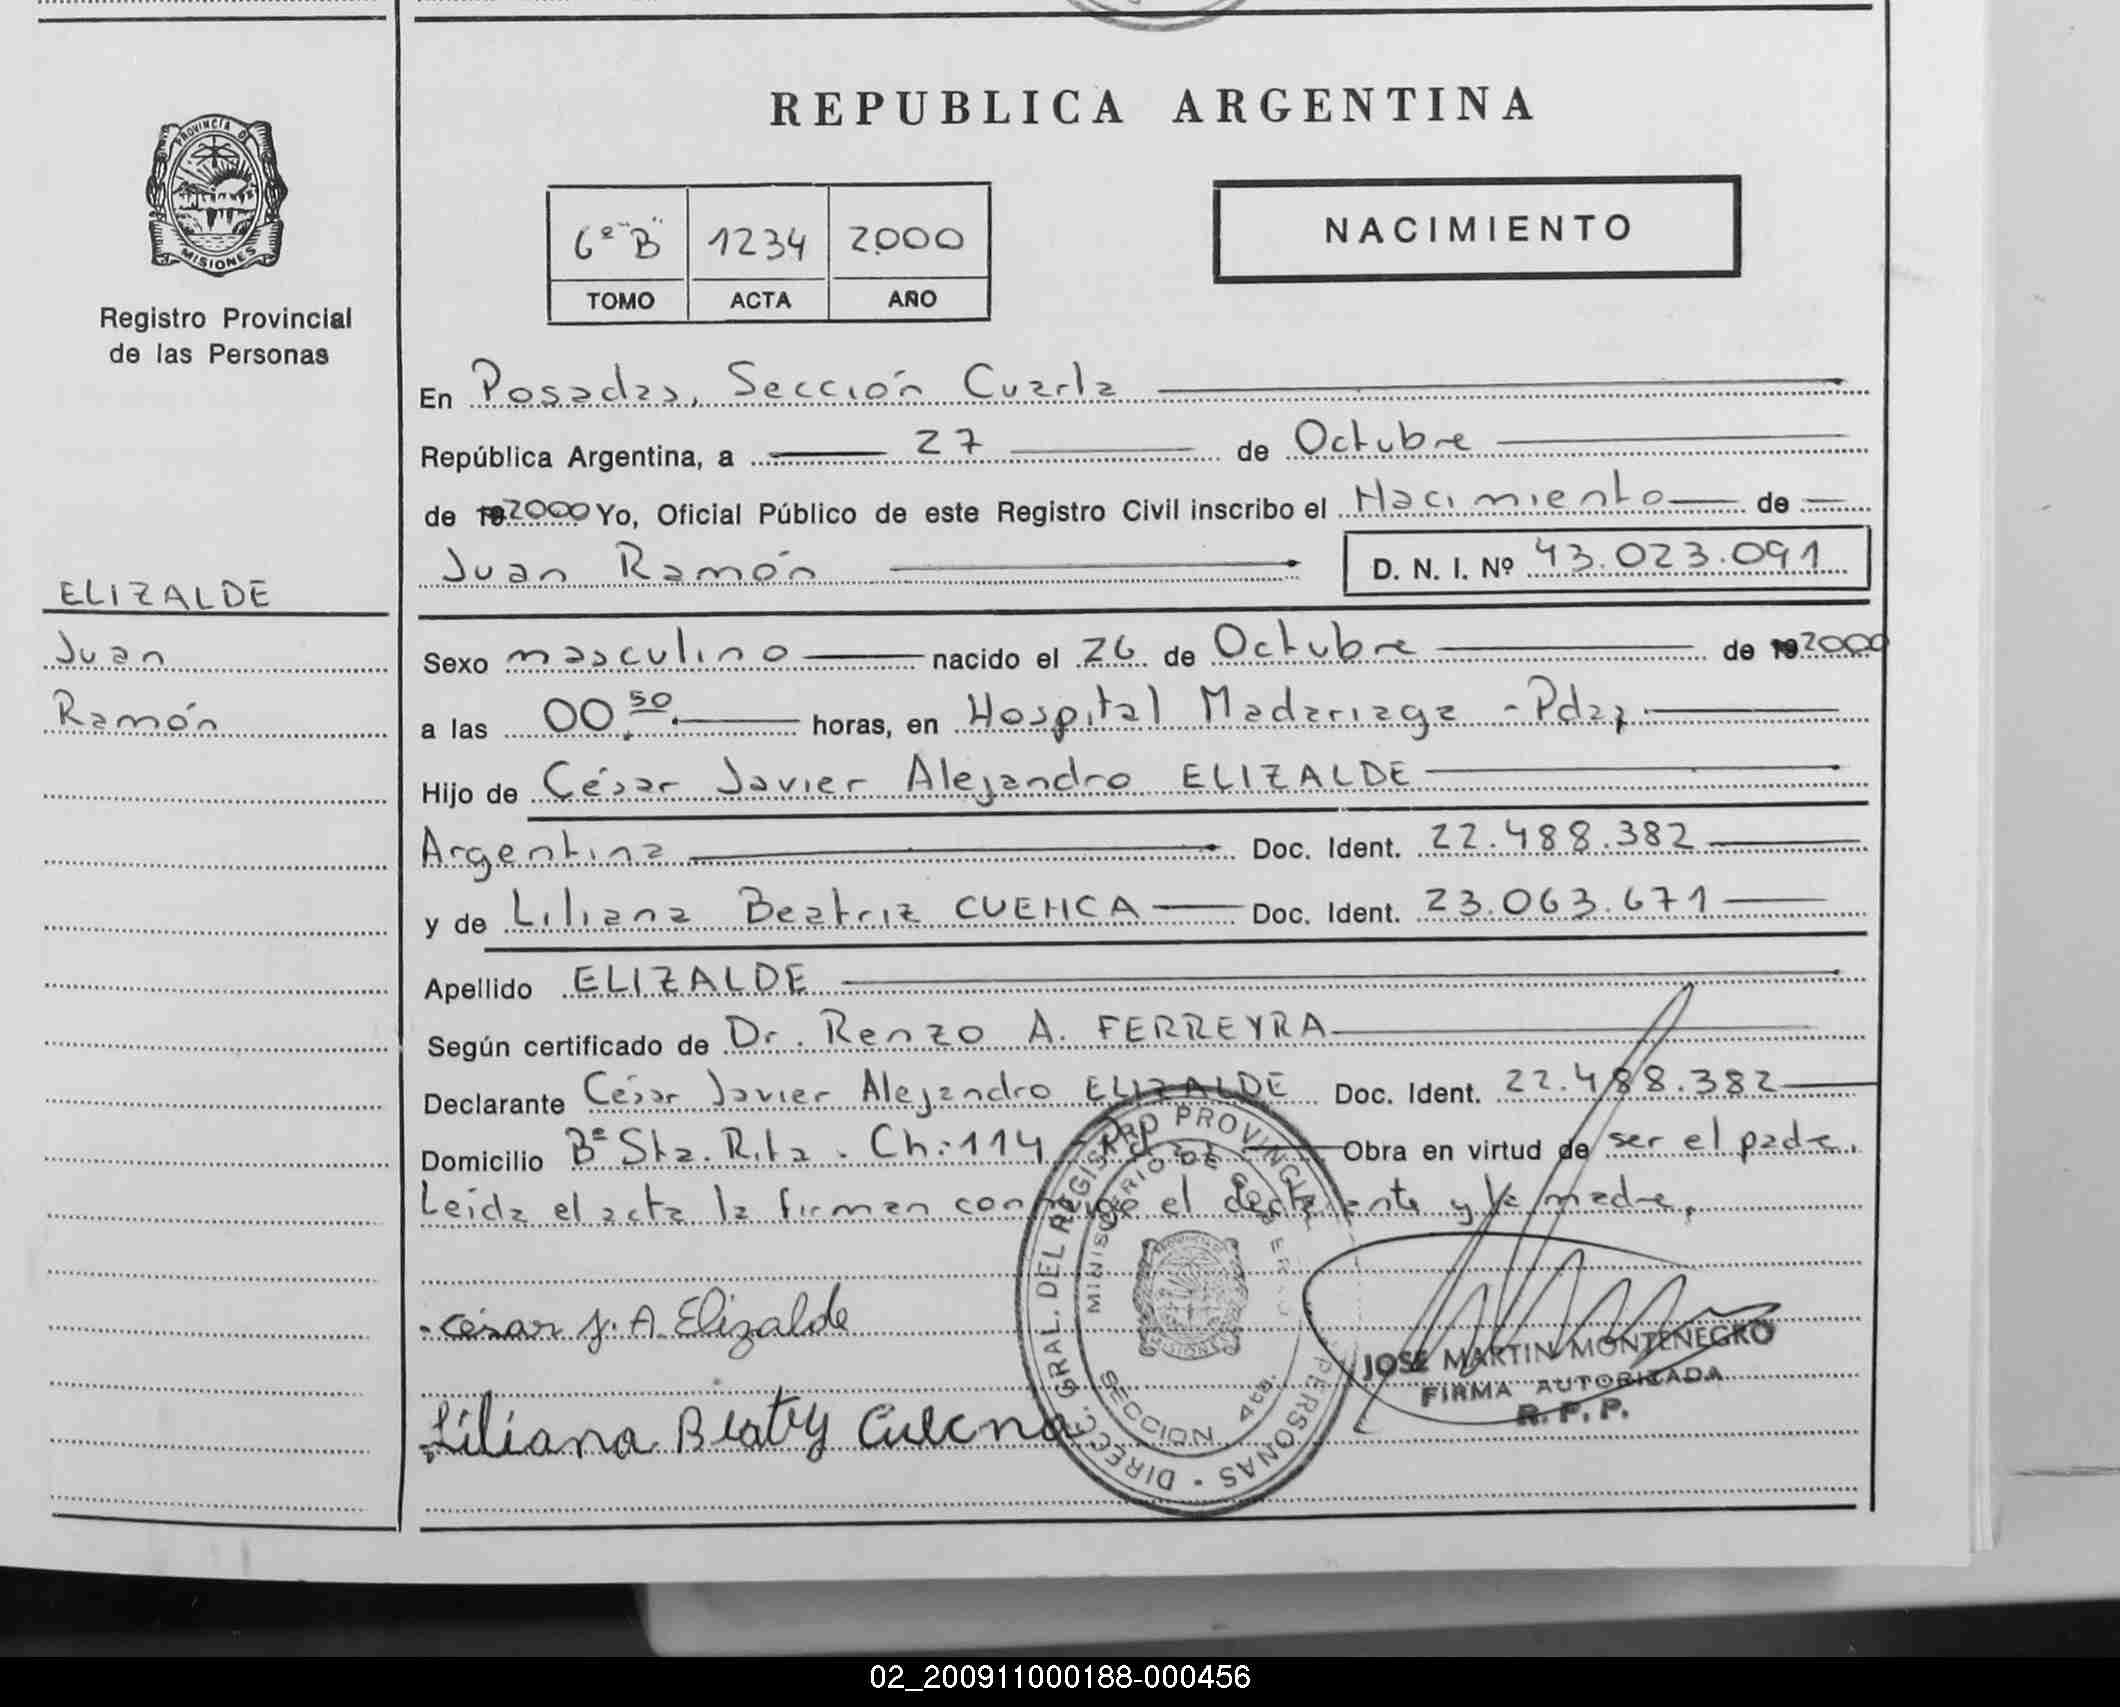 REPUBLICA ARGENTINA
PROVINCIA DE
MISIONES
Registro Provincial
de las Personas
6º "B" 1234 2000
TOMO ACTA AÑO
NACIMIENTO
En Posadas, Sección Cuarta
República Argentina, a 27 de Octubre
de 19 2000 Yo, Oficial Público de este Registro Civil inscribo el Nacimiento de
Juan Ramón D. N. I. Nº 43.023.091
ELIZALDE
Juan
Ramón
Sexo masculino nacido el 26 de Octubre de 19 2000
a las 00.50 horas, en Hospital Madariaga - Pdas
Hijo de César Javier Alejandro ELIZALDE
Argentina Doc. Ident. 22.488.382
y de Liliana Beatriz CUENCA Doc. Ident. 23.063.671
Apellido ELIZALDE
Según certificado de Dr. Renzo A. FERREYRA
Declarante César Javier Alejandro ELIZALDE Doc. Ident. 22.488.382
Domicilio Bº Sta. Rita. Ch: 114 Obra en virtud de ser el padre.
Leída el acta la firman conmigo el declarante y la madre.
César J. A. Elizalde
Liliana Beatriz Cuenca
DIRECC. GRAL. DEL REGISTRO PROVINCIAL PERSONAS
MINISTERIO DE GOBIERNO
SECCION 4ta.
JOSE MARTIN MONTENEGRO
FIRMA AUTORIZADA
R. P. P.
02_200911000188-000456